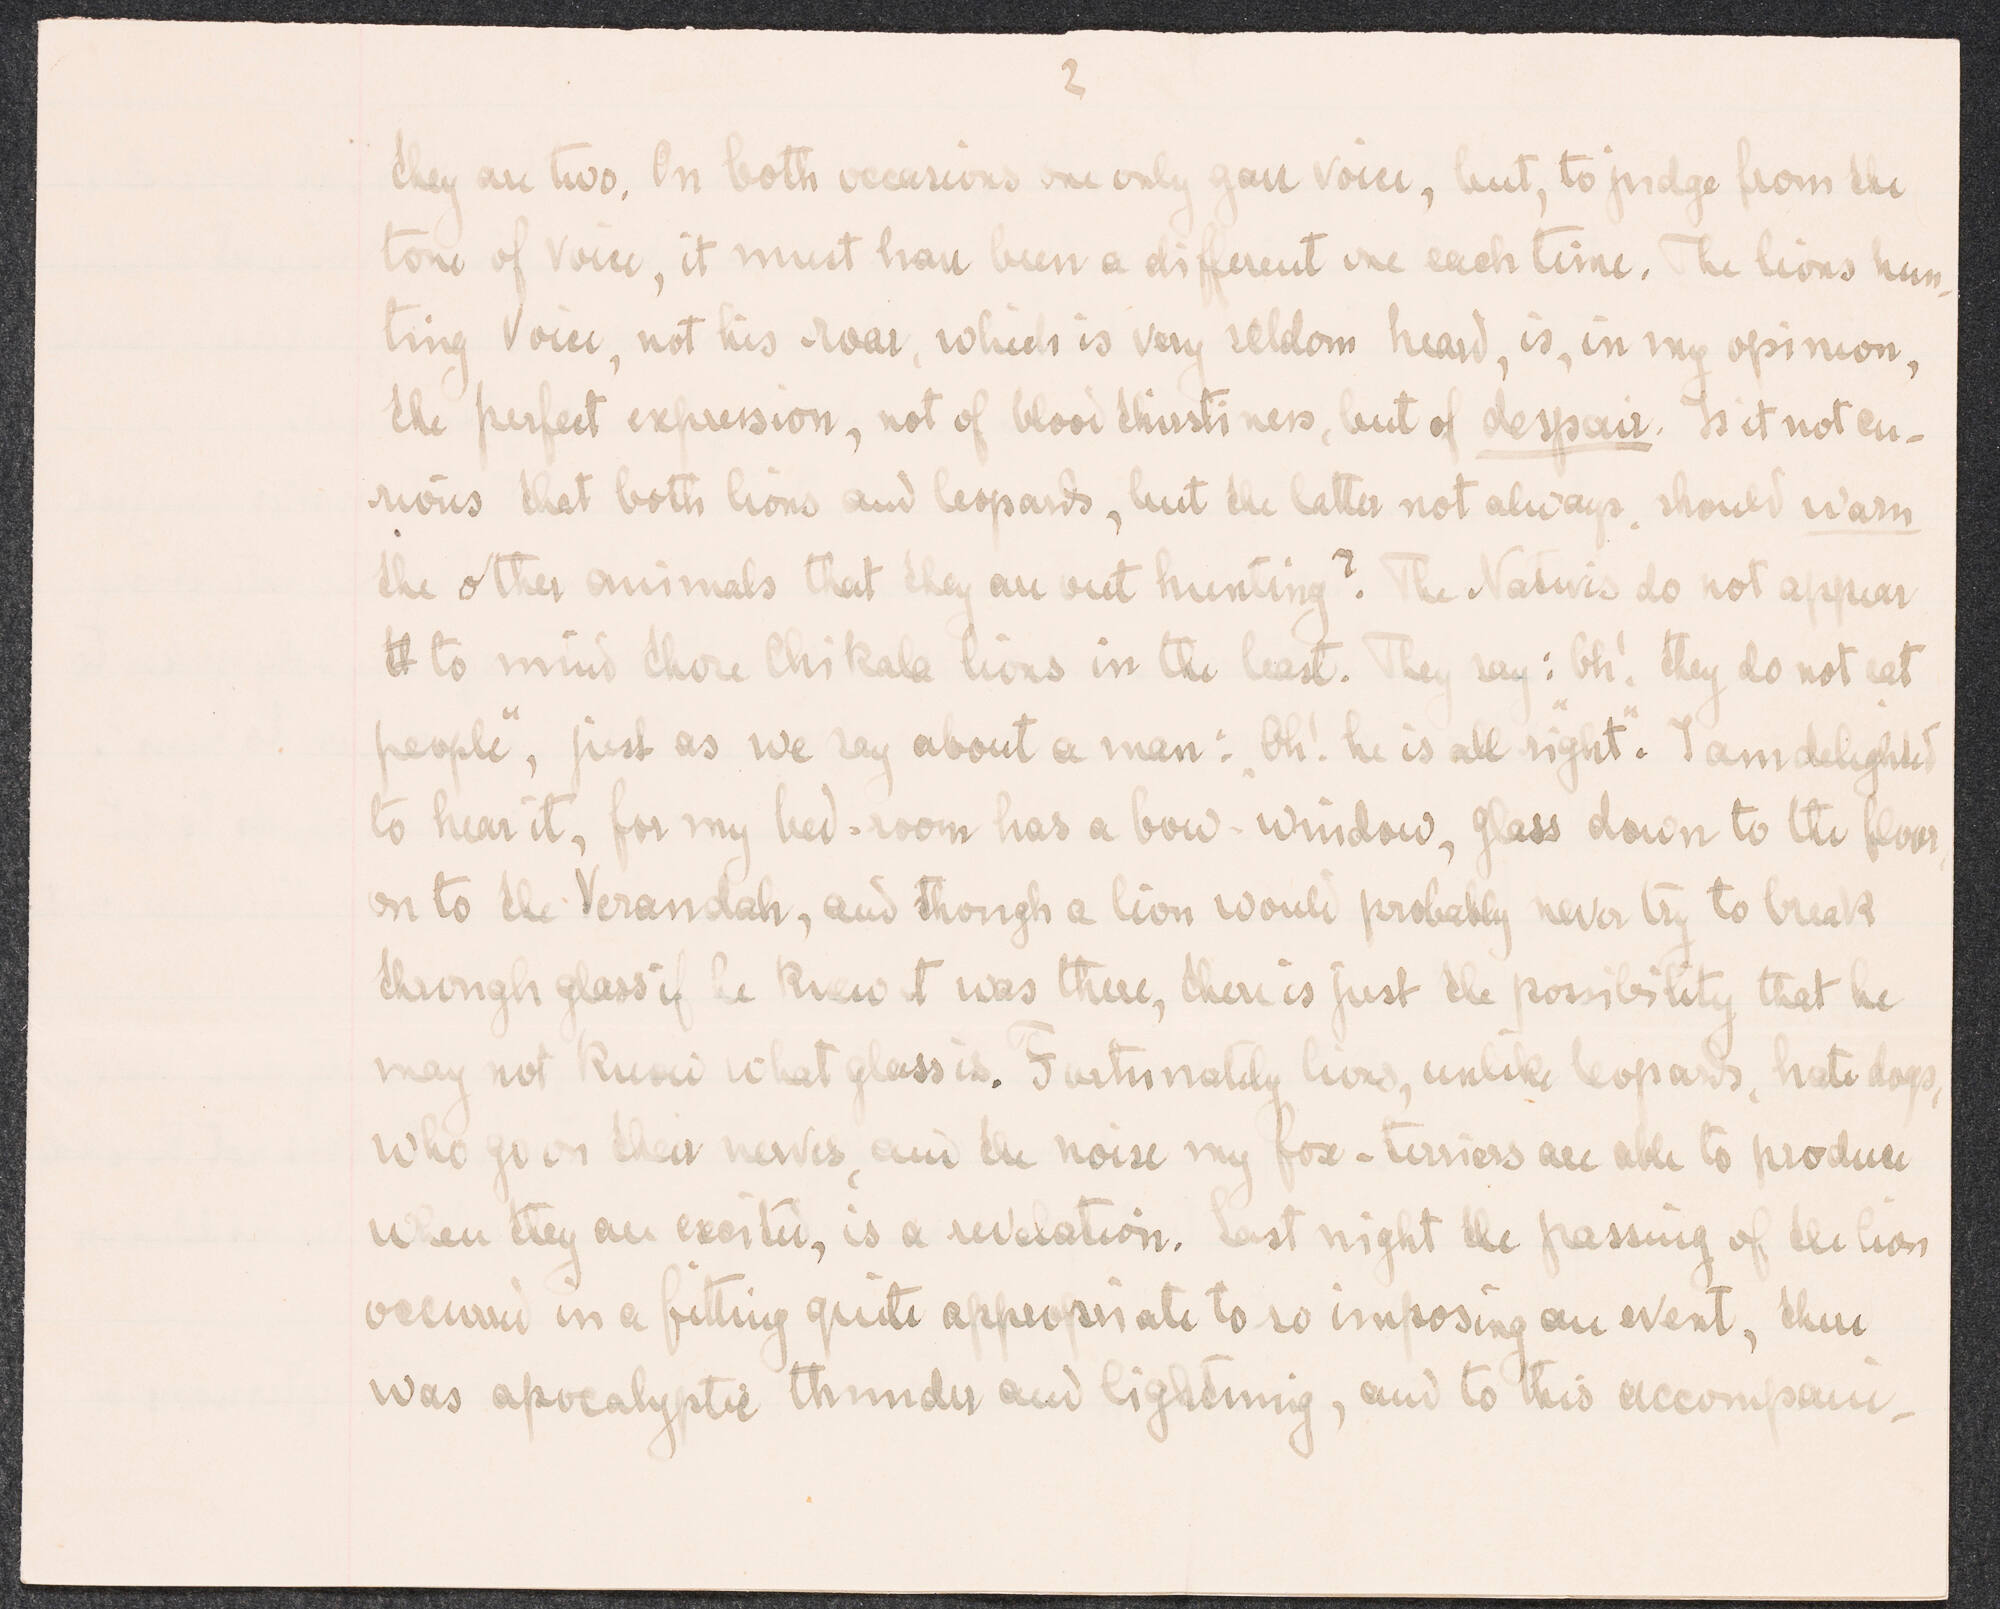 2
they are two. On both occasions one only gave voice, but, to judge from the
tone of voice, it must have been a different one each time. The lions hun-
ting voice, not his roar, which is very seldom heard, is, in my opinion,
the perfect expression, not of blood thirstiness, but of despair. Is it not cu-
rious that both lions and leopards, but the latter not always, should warn
the other animals that they are out hunting? The Natives do not appear
to mind those Chikala lions in the least. They say: Oh! they do not eat
people", just as we say about a man: "Oh! he is all right". I am delighted
to hear it, for my bed-room has a bow-window, glass down to the floor,
on to the Verandah, and though a lion would probably never try to break
through glass if he knew it was there, there is just the possibility that he
may not know what glass is. Fortunately lions, unlike leopards, hate dogs,
who go on their nerves, and the noise my fox-terriers are able to produce
when they are excited, is a revelation. Last night the passing of the lion
occurred in a fitting quite appropriate to so imposing an event, there
was apocalyptic thunder and lightning, and to this accompani-